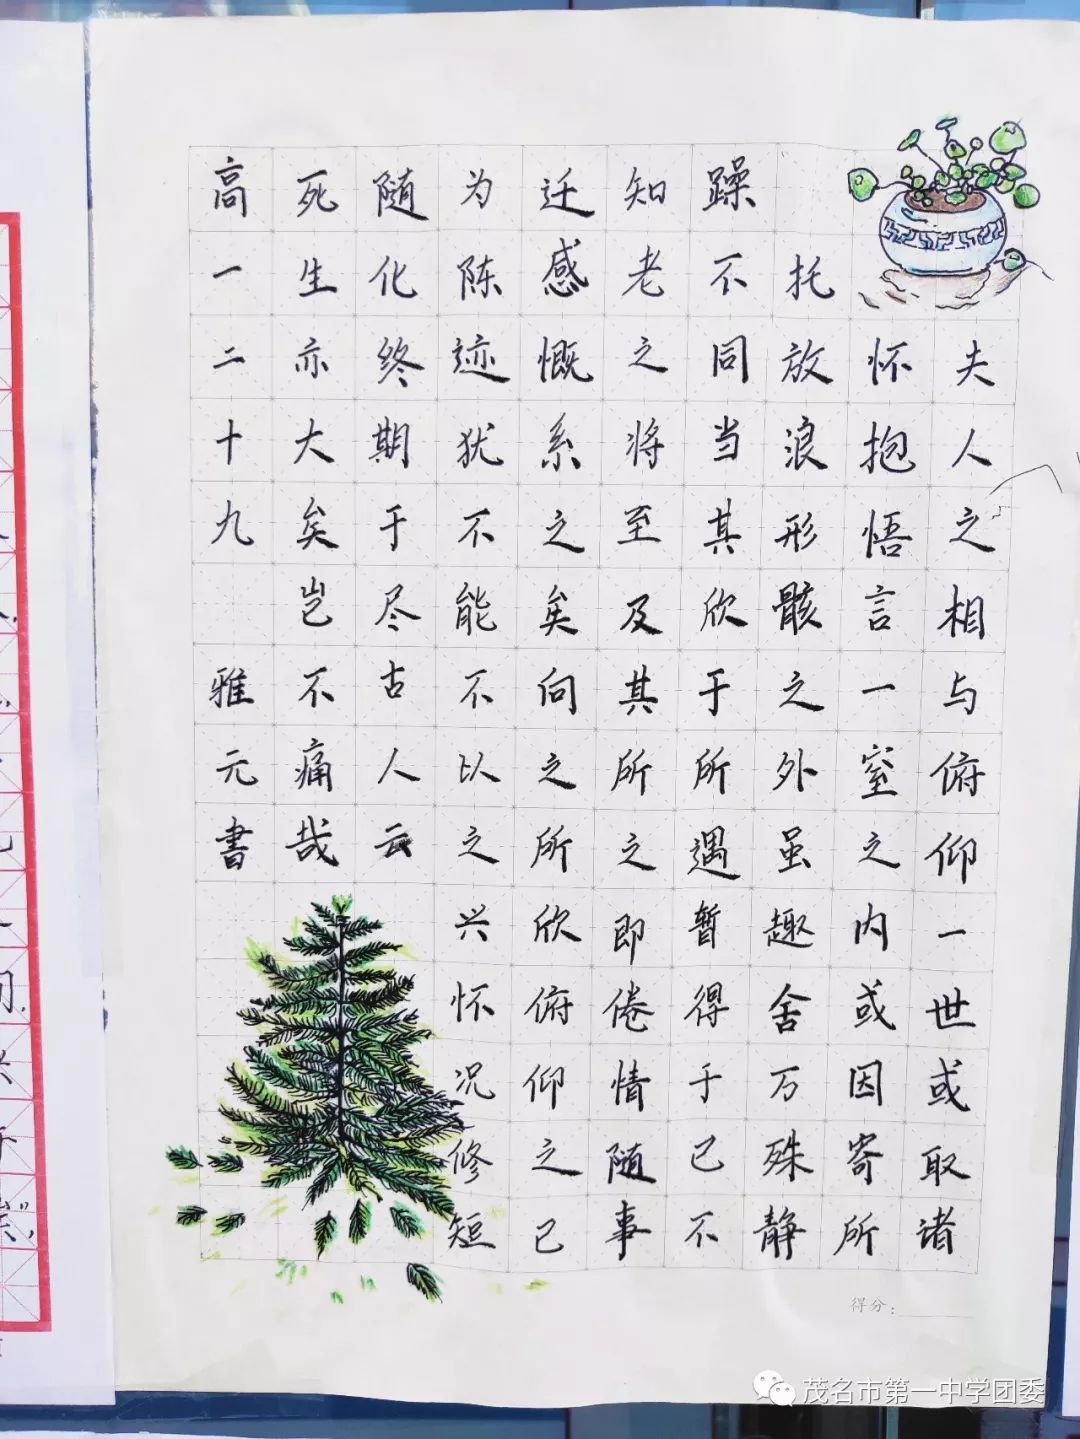 夫人之相与俯仰一世或取诸
怀抱悟言一窒之内或因寄所
托放浪形骸之外虽趣舍万殊静
躁不同当其欣于所遇暂得于己不
知老之将至及其所之即倦情随事
迁感慨系之矣向之所欣俯仰之已
为陈迹犹不能不以之兴怀况修短
随化终期于尽古人云
死生亦大矣岂不痛哉
高一二十九 雅元書
得分：
茂名市第一中学团委